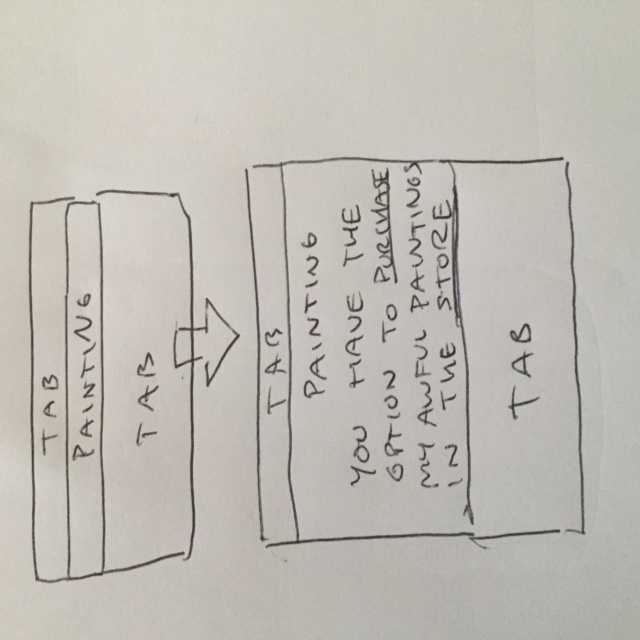 TAB
PAINTING
TAB
TAB
PAINTING
YOU HAVE THE
OPTION TO PURCHASE
MY AWFUL PAINTINGS
IN THE STORE
TAB